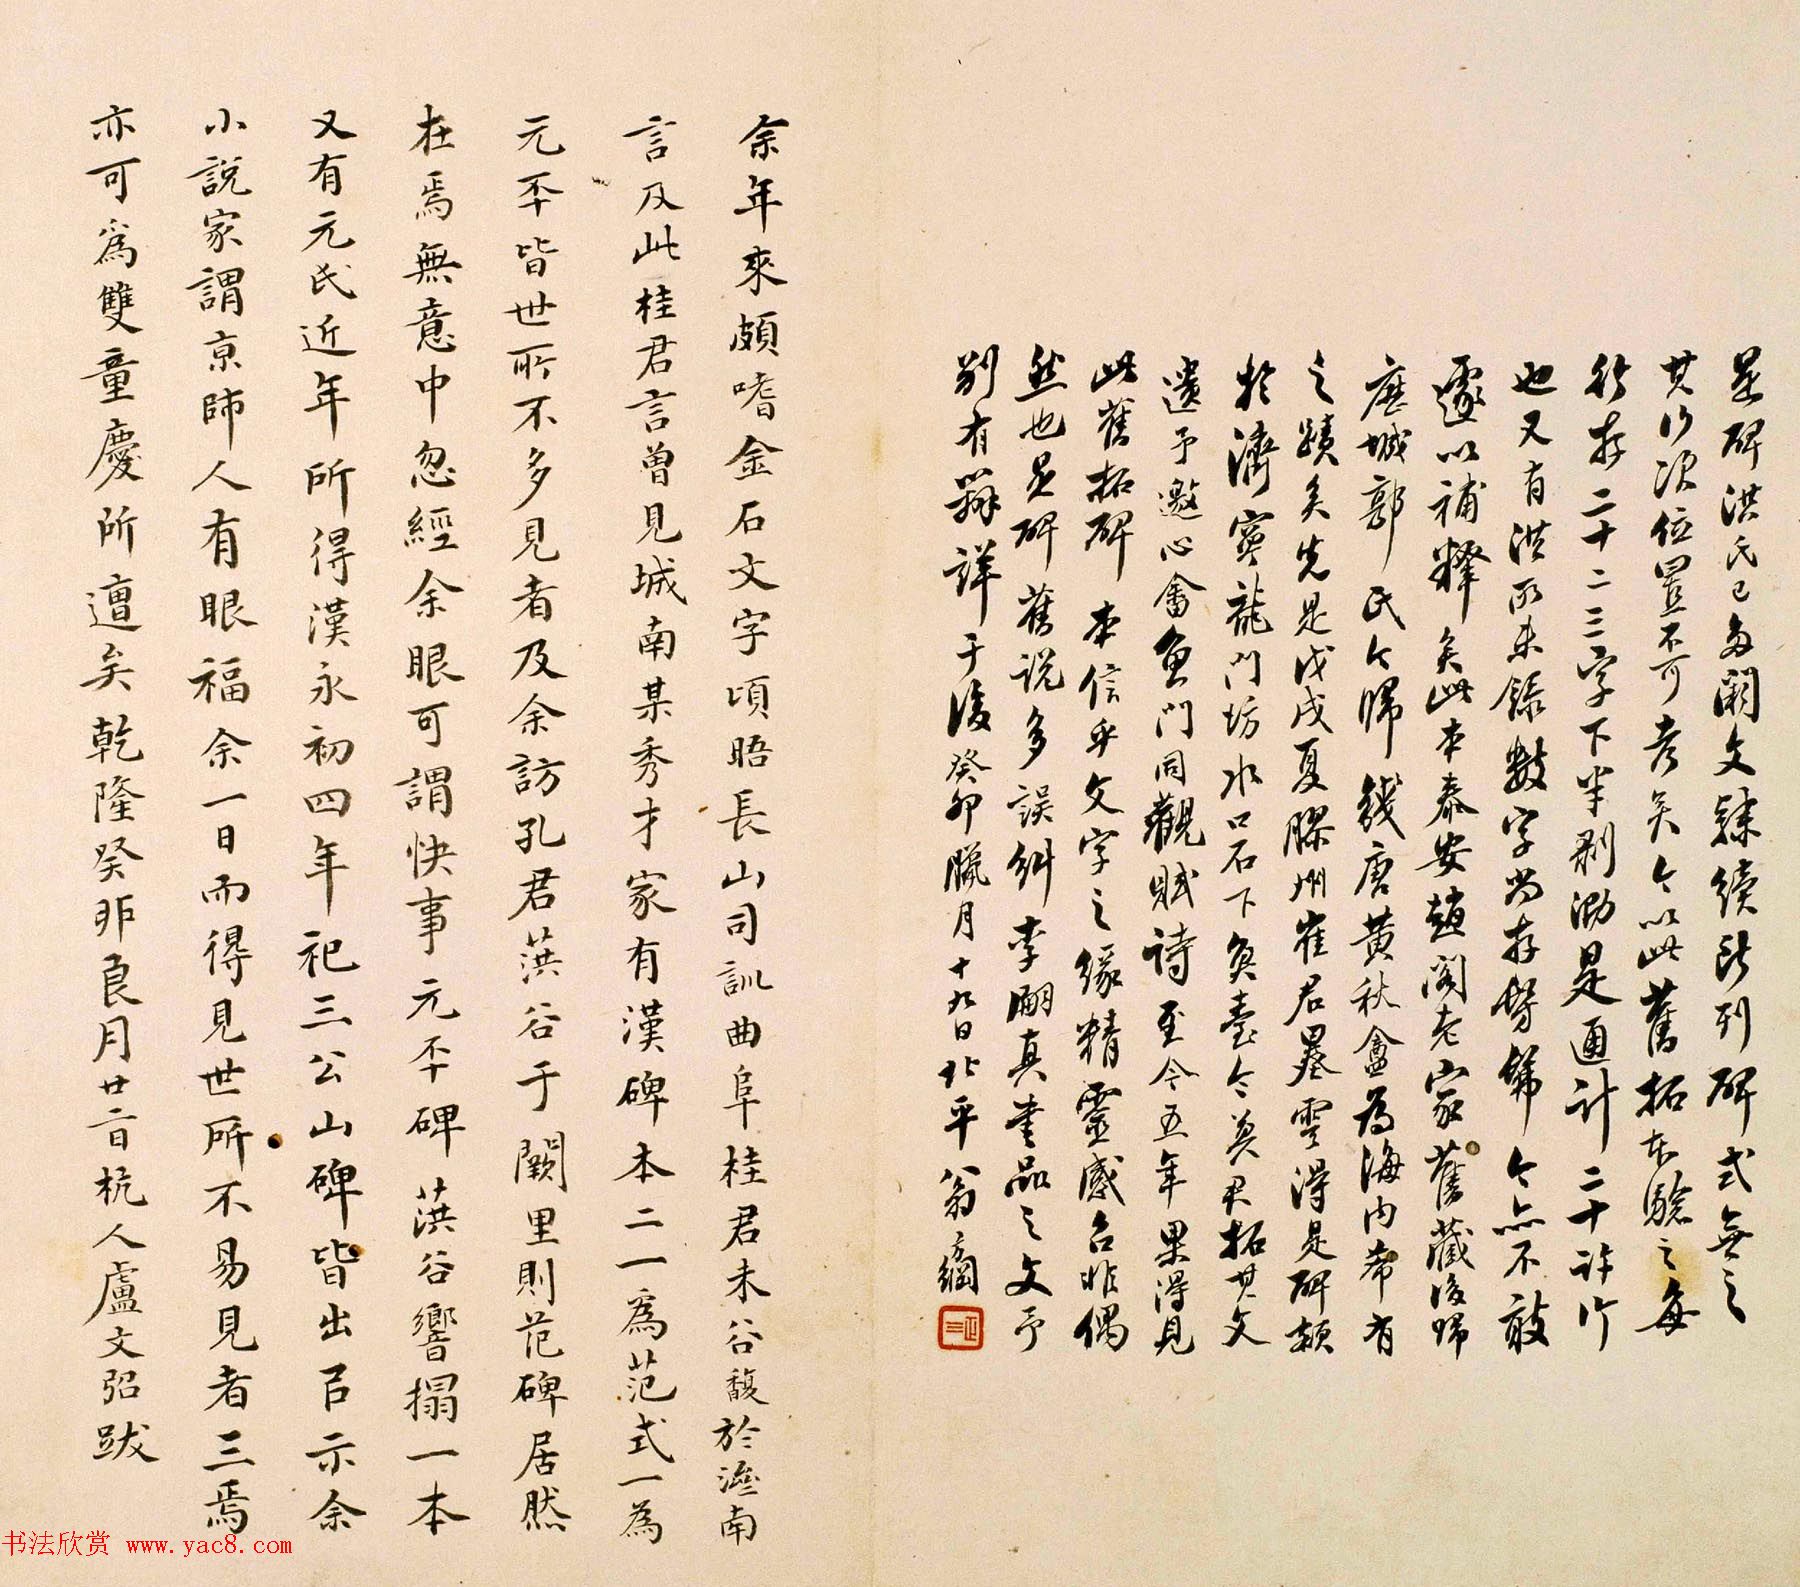 是碑洪氏已多闕文隸續所列碑式無之
其行次位置不可考矣今以此舊拓本驗之每
行存二十二三字下半剝泐是通計二十許行
也又有洪所未錄數字尚存髣髴今亦不敢
遽以補釋矣此本泰安趙閣老家舊藏後歸
歷城郭氏今歸錢唐黃秋盦為海內希有
之蹟矣先是戊戌夏膠州崔君墨雲得是碑額
於濟寧龍門坊水口石下負臺令莫君拓其文
遺予邀心畬魚門同觀賦詩至今五年果得見
此舊拓碑本信乎文字之緣精靈感召非偶
然也是碑舊說多誤糾李嗣真書品之文予
別有辨詳于後癸卯臘月十九日北平翁方綱
余年來頗嗜金石文字頃晤長山司訓曲阜桂君未谷馥於濟南
言及此桂君言曾見城南某秀才家有漢碑本二一為范式一為
元丕皆世所不多見者及余訪孔君葓谷于闕里則范碑居然
在焉無意中忽經余眼可謂快事元丕碑葓谷響搨一本
又有元氏近年所得漢永初四年祀三公山碑皆出㠯示余
小說家謂京師人有眼福余一日而得見世所不易見者三焉
亦可為雙童慶所遭矣乾隆癸卯良月廿一日杭人盧文弨跋
书法欣赏 www.yac8.com